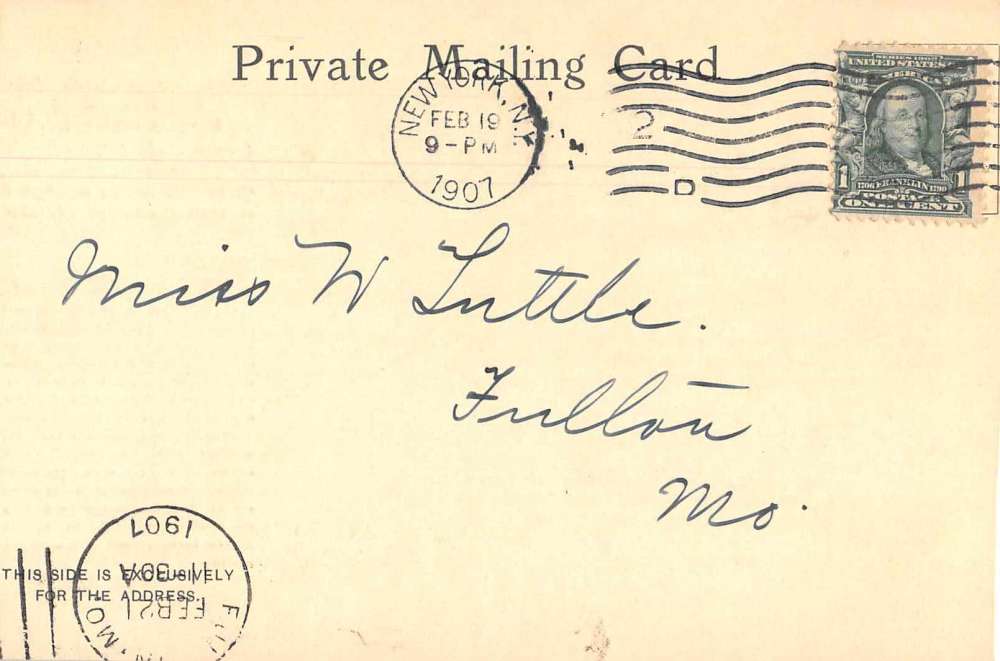 Private Mailing Card
NEW YORK, N.Y.
FEB 19
9-PM
1907
2
D
SERIES 1902
UNITED STATES OF AMERICA
1 1706 FRANKLIN 1790 1
POSTAGE
ONE CENT
Miss W Tuttle.
Fulton
Mo.
THIS SIDE IS EXCLUSIVELY
FOR THE ADDRESS.
1907
11-30A
FEB 21
MO.